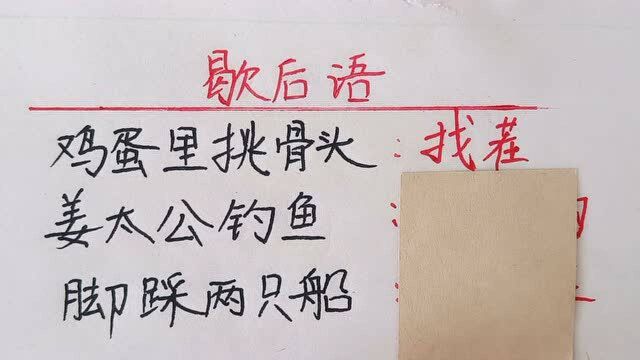 歇后语
鸡蛋里挑骨头:找茬
姜太公钓鱼:
脚踩两只船: